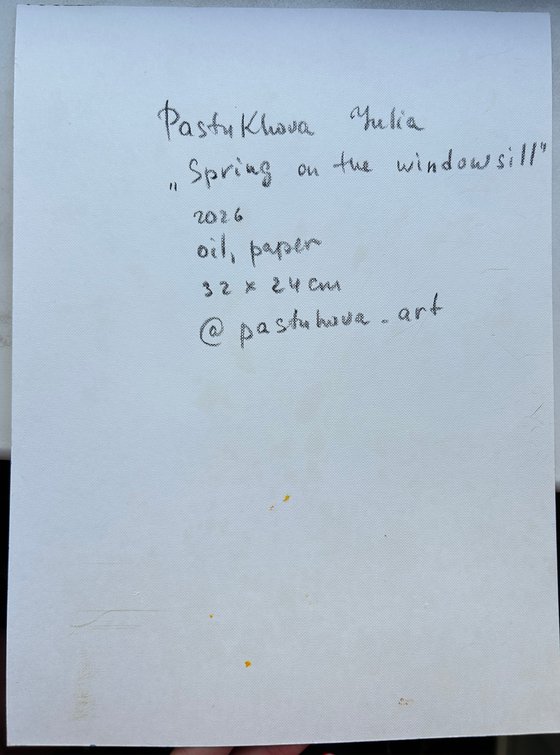 Pastukhova Yulia
„Spring on the windowsill"
2026
oil, paper
32 x 24 cm
@pastuhova_art